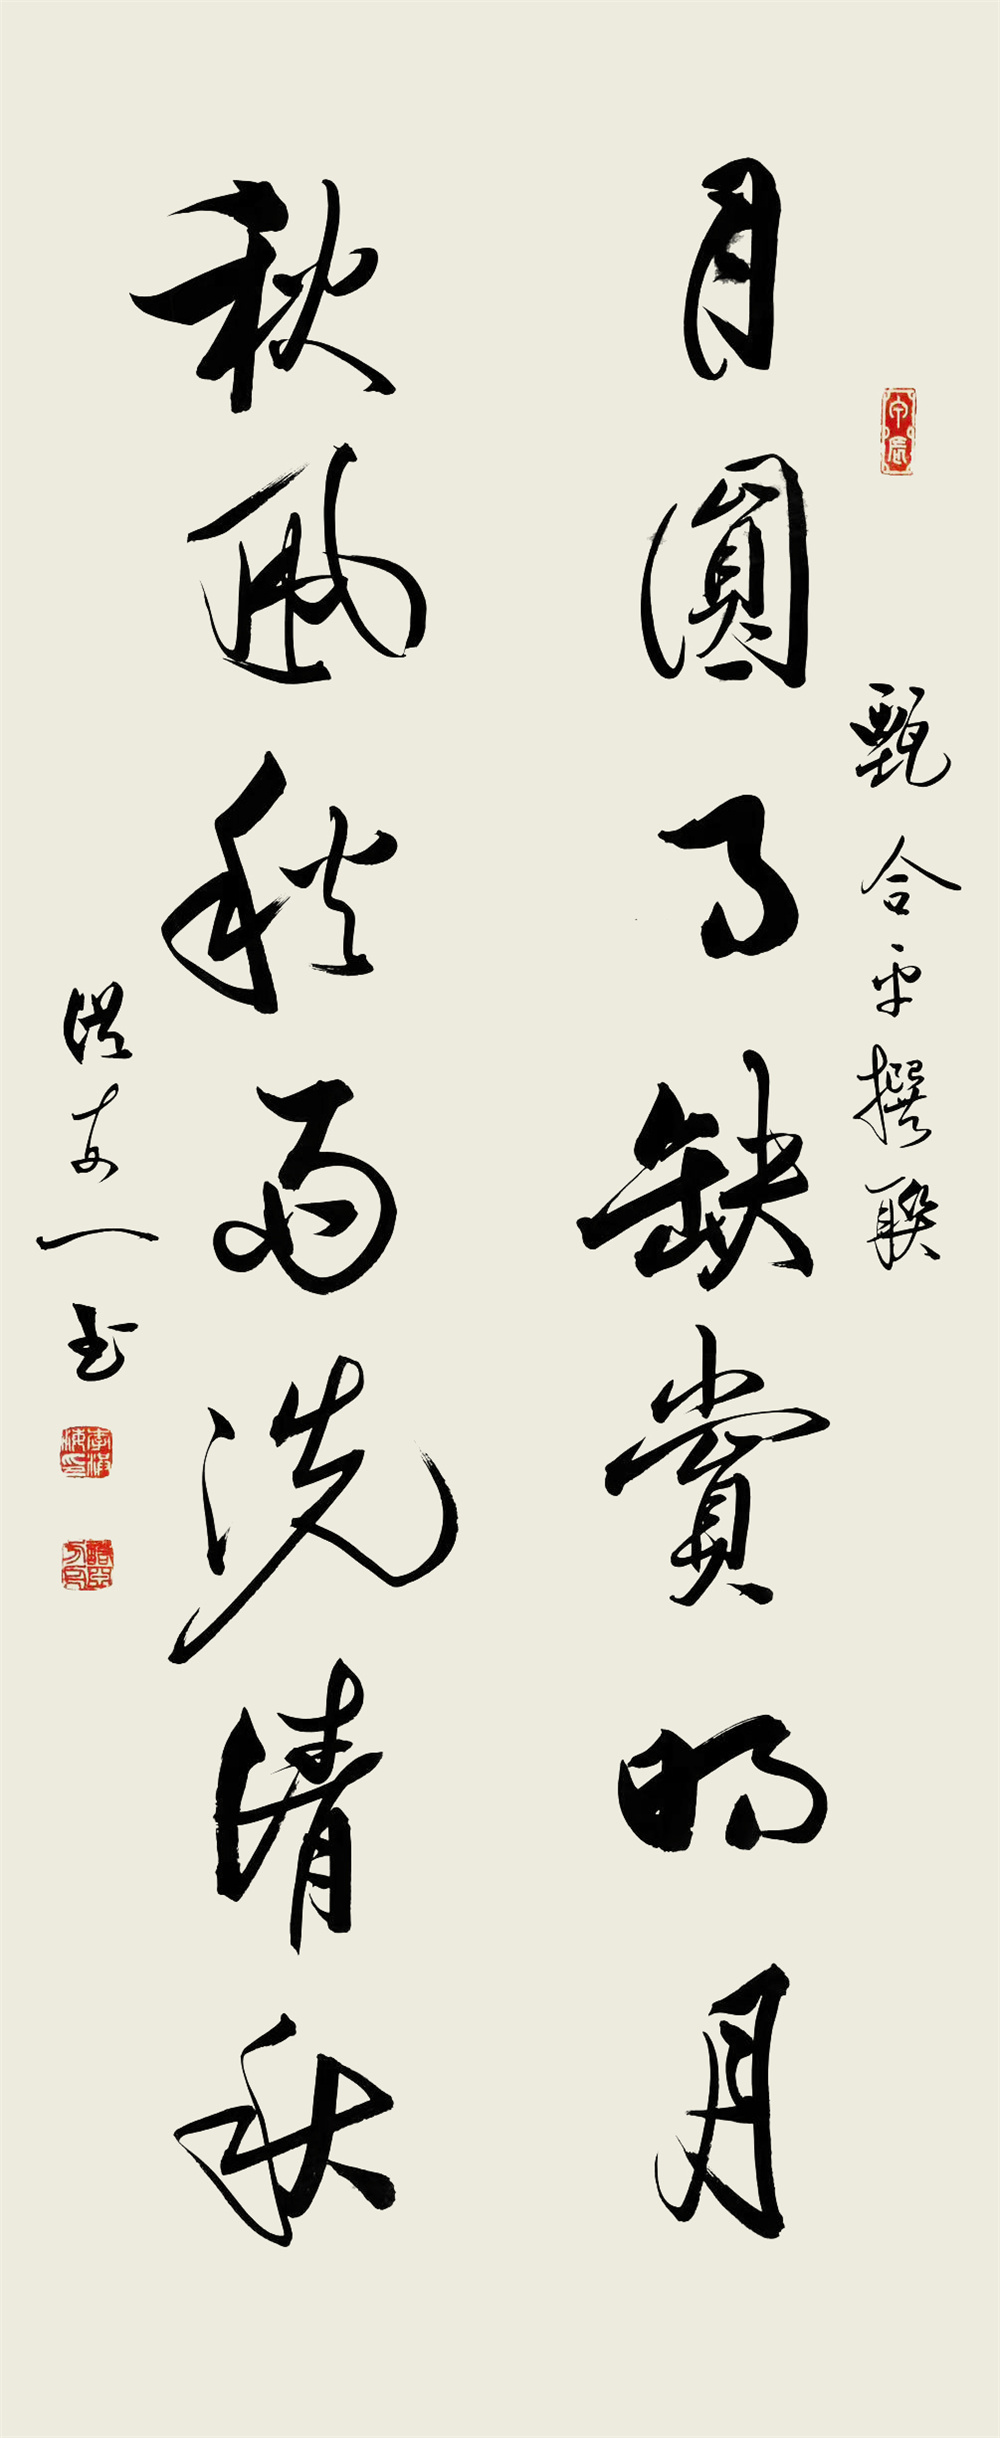 甲辰
甄合平撰聯
月圓月缺賞明月
秋風秋雨洗清秋
一书